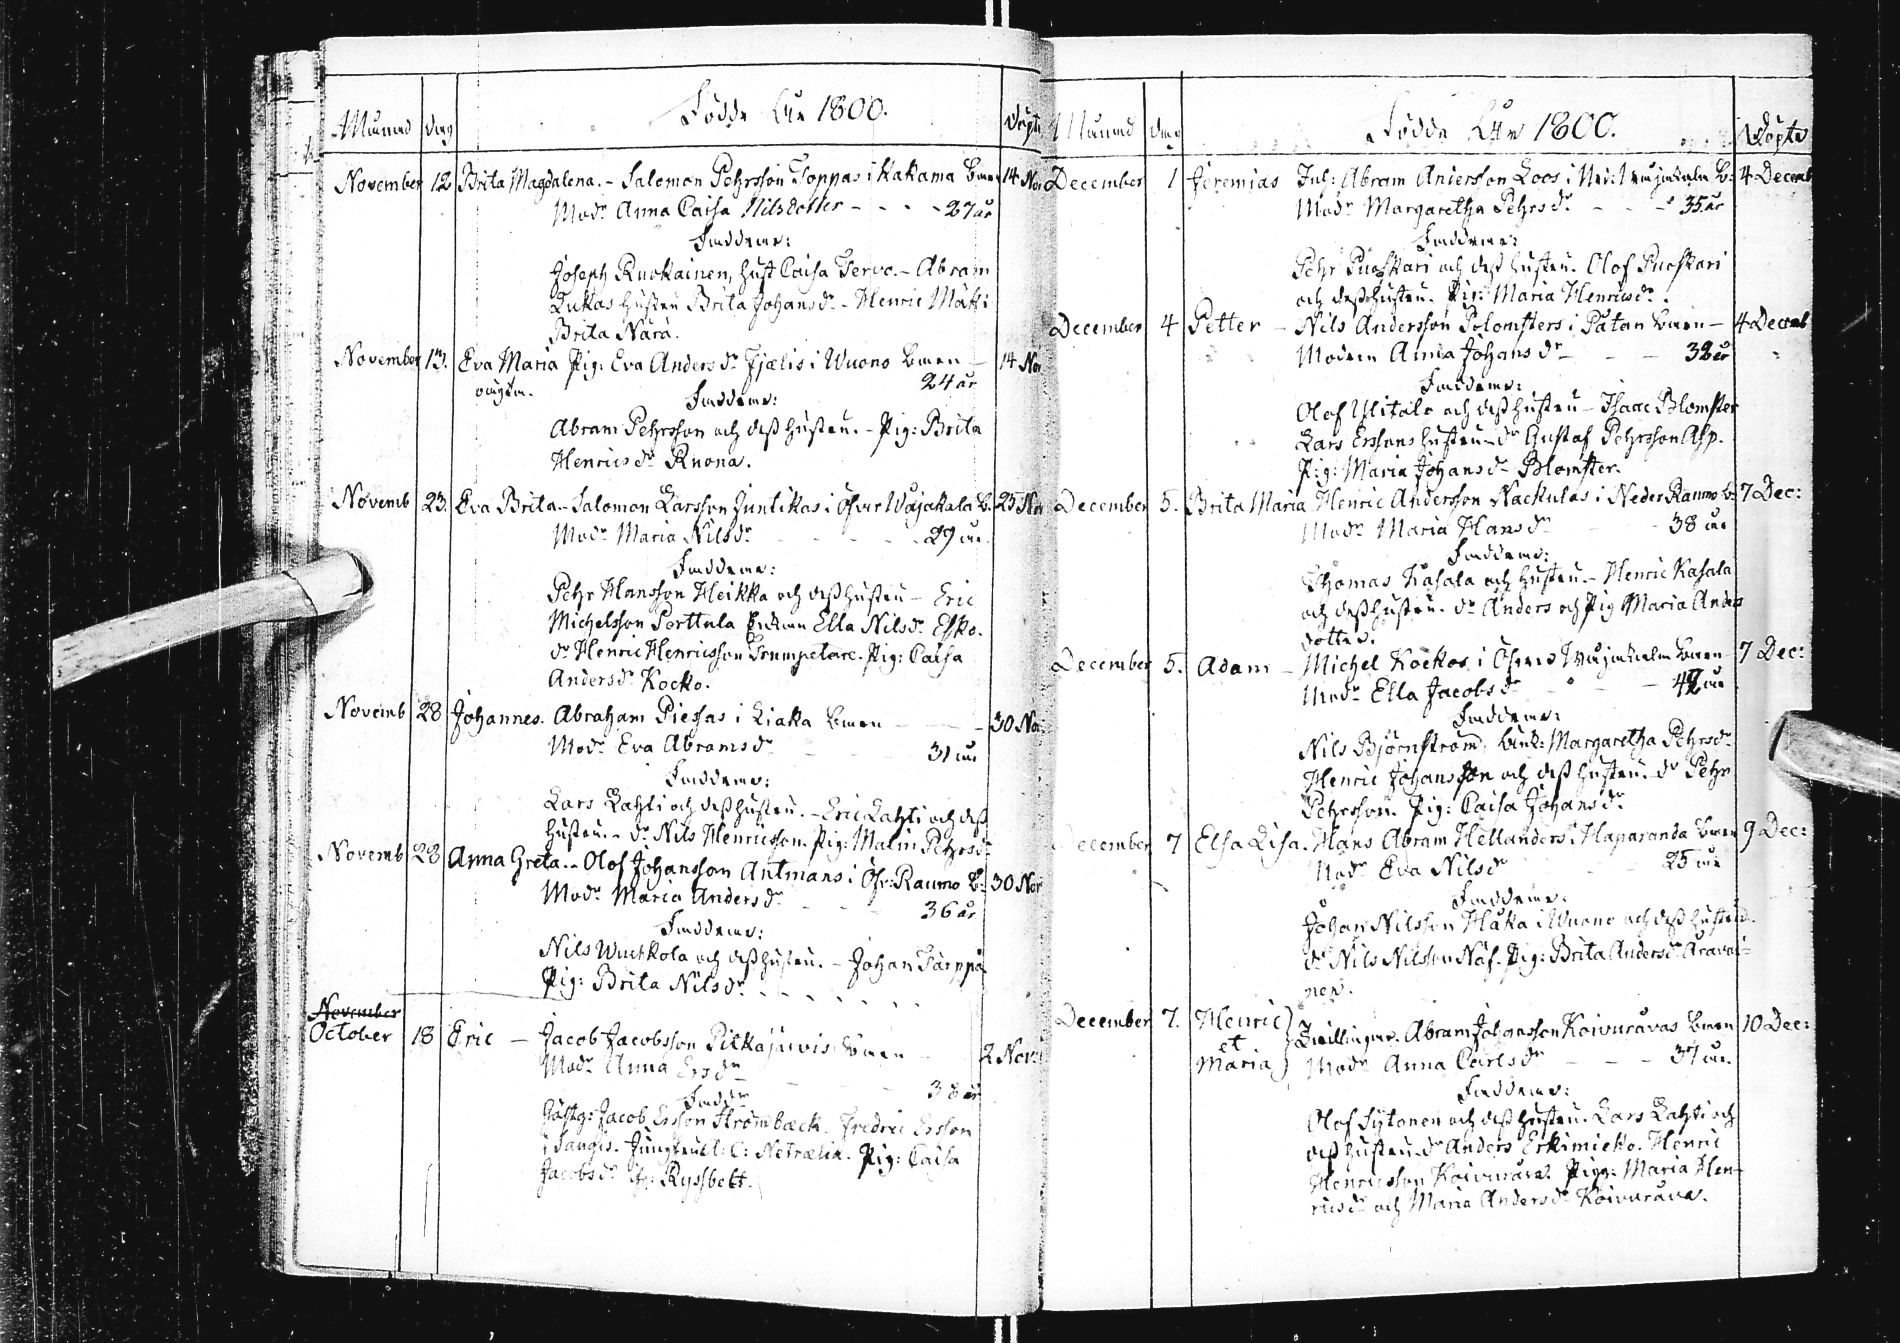 Månad dag Födde År 1800. Döpte
November 12 Brita Magdalena. - Salomon Pehrsson Toppas i Kakama barn 14 Nov
Modr Anna Caisa Nilsdotter - - - - 27 år
Faddrar:
Joseph Ruokainen, hust Caisa Tervo. - Abram
Lukas Hustru Brita Johansdr - Henric Mäki
Brita Nara.
November 13. Eva Maria Pig: Eva Andersdr Fjælis i Wuono barn - 14 Nov
oägta. 24 år
Faddrar:
Abram Pehrsson och dess hustru. - Pig: Brita
Henricsdr Ruona.
Novemb 23. Eva Brita. - Salomon Larsson Juntikas i Öfver Wojakala B. 25 Nov
Modr Maria Nilsdr - - - - 29 år.
Faddrar:
Pehr Hansson Heikka och dess hustru - Eric
Michelsson Perttula Enkan Ella Nilsdr Esko.
dr Henric Henricsson Trumpetare. Pig: Caisa
Andersdr Kocko.
Novemb 28 Johannes. Abraham Piessas i Liaka barn - - 30 Nov:
Modr Eva Abramsdr - - 31 år
Faddrar:
Lars Lahti och dess hustru. - Eric Lahti och dess
hustru. - dr Nils Henricsson. Pig: Malin Pehrsdr
Novemb 28 Anna Greta. - Olof Johansson Antmans i Öfr: Raumo B: 30 Nov
Modr Maria Andersdr - - 36 år
Faddrar:
Nils Wuokola och dess hustru. - Johan Tarppa
Pig: Brita Nilsdr - - - -
November
October 18 Eric - Jacob Jacobsson Pitkajärvis barn 2 Nov:
Modr Anna Ersdr - - - 38 år
Faddr
Gästg: Jacob Ersson Strömbäck. Fredric Ersson
i Sangis. Jungfru A: C: Netzelia. Pig: Caisa
Jacobsdr Ryssbett.
Månad dag Födde År 1800. Döpte
December 1 Jeremias Inh: Abram Andersson Loos i Ned: Wojakala B: 4 Decemb
Modr Margaretha Pehrsdr - - - 35 år
Faddrar:
Pehr Puoskari och dess hustru. Olof Puoskari
och dess hustru. Pig: Maria Henricsdr.
December 4 Petter - Nils Andersson Blomsters i Påtan barn - 4 Decemb
Modren Anna Johansdr - - - 38 år
Faddrar:
Olof Ylitalo och dess hustru - Isaac Blomster
Lars Erssons hustru - dr Gustaf Pehrsson Asp.
Pig: Maria Johansdr Blomster.
December 5. Brita Maria Henric Andersson Nackulas i Neder Raumo B: 7 Dec:
Modr Maria Hansdr - - 38 år
Faddrar:
Thomas Kasala och hustru. - Henric Kasala
och dess hustru. dr Anders och Pig Maria Anders
dotter.
December 5. Adam - Michel Kockos i Öfver Wojakala barn - 7 Dec:
Modr Ella Jacobsdr - - - 42 år
Faddrar:
Nils Björnström, Enk: Margaretha Pehrsdr
Henric Johansson och dess hustru. dr Pehr
Pehrsson. Pig: Caisa Johansdr
December 7 Elsa Lisa. Hans Abram Hellanders i Haparanda barn 9 Dec:
Modr Eva Nilsdr - - 25 år
Faddrar:
Johan Nilsson Håka i Wuono och dess hustru.
dr Nils Nilsson Näf. Pig: Brita Andersdr Aravai-
nen.
December 7. Henric Tvillingar. Abram Johansson Koivuråvas barn 10 Dec:
et
Maria Modr Anna Carlsdr - - - 37 år.
Faddrar:
Olof Sytonen och dess hustru. Lars Lahti och
dess hustru. dr Anders Erkimicko. Henric
Henricsson Koivuråva. Pigg: Maria Hen-
ricsdr och Maria Andersdr Koivuråva.